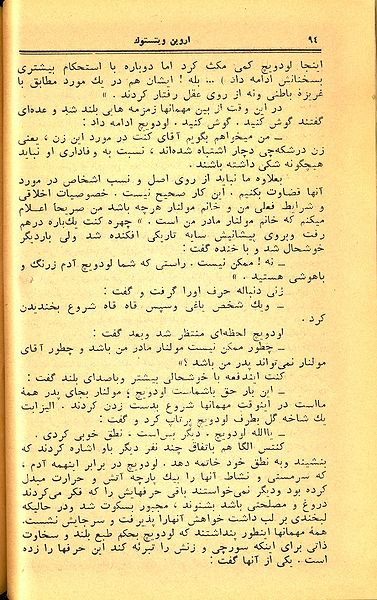 ۹٤ اروین ویتستوک
اینجا لودویج کمی مکث کرد اما دوباره با استحکام بیشتری
بسخنانش ادامه داد ) ... بله ! ایشان هم در یك مورد مطابق با
غریزهٔ باطنی ونه از روی عقل رفتار کردند . »
در این وقت از بین مهمانها زمزمه هایی بلند شد و عده‌ای
گفتند گوش کنید . گوش کنید . لودویج ادامه داد :
ـ من میخواهم بگویم آقای کنت در مورد این زن ، یعنی
زن درشکه‌چی دچار اشتباه شده‌اند ، نسبت به وفاداری او نباید
هیچگونه شکی داشته باشند .
بعلاوه ما نباید از روی اصل و نسب اشخاص در مورد
آنها قضاوت بکنیم . این کار صحیح نیست . خصوصیات اخلاقی
و شرایط فعلی من و خانم مولنار هرچه باشد من صریحا اعلام
میکنم که خانم مولنار مادر من است . » چهره کنت یك‌باره درهم
رفت وبروی پیشانیش سایه تاریکی افکنده شد ولی باردیگر
خوشحال شد و با خنده گفت :
ـ نه ! ممکن نیست . راستی که شما لودویج آدم زرنگ و
باهوشی هستید . »
زنی دنباله حرف اورا گرفت و گفت :
ـ ویك شخص یاغی وسپس قاه قاه شروع بخندیدن
کرد .
لودویج لحظه‌ای منتظر شد وبعد گفت :
ـ چطور ممکن نیست مولنار مادر من باشد و چطور آقای
مولنار نمی‌تواند پدر من باشد ؟»
کنت ایندفعه با خوشحالی بیشتر وباصدای بلند گفت :
ـ این بار حق باشماست لودویج ؛ مولنار بجای پدر همهٔ
مااست در اینوقت مهمانها شروع بدست زدن کردند . الیزابت
یك شاخه گل بطرف لودویج پرتاب کرد و گفت :
ـ یاالله لودویج . دیگر بس‌است . نطق خوبی کردی .
کنتس الگا هم باتفاق چند نفر دیگر باو اشاره کردند که
بنشیند وبه نطق خود خاتمه دهد . لودویج در برابر اینهمه آدم ،
که سرمستی و نشاط آنها را بیك پارچه آتش و حرارت مبدل
کرده بود ودیگر نمی‌خواستند باقی حرفهایش را که فکر می‌کردند
دروغ و مصلحتی باشد بشنوند ، مجبور بسکوت شد ودر حالیکه
لبخندی بر لب داشت خواهش آنهارا پذیرفت و سرجایش نشست.
همهٔ مهمانها اینطور پنداشتند که لودویج بحکم طبع بلند و سخاوت
ذاتی برای اینکه سورچی و زنش را تبرئه کند این حرفها را زده
است . یکی از آنها گفت :